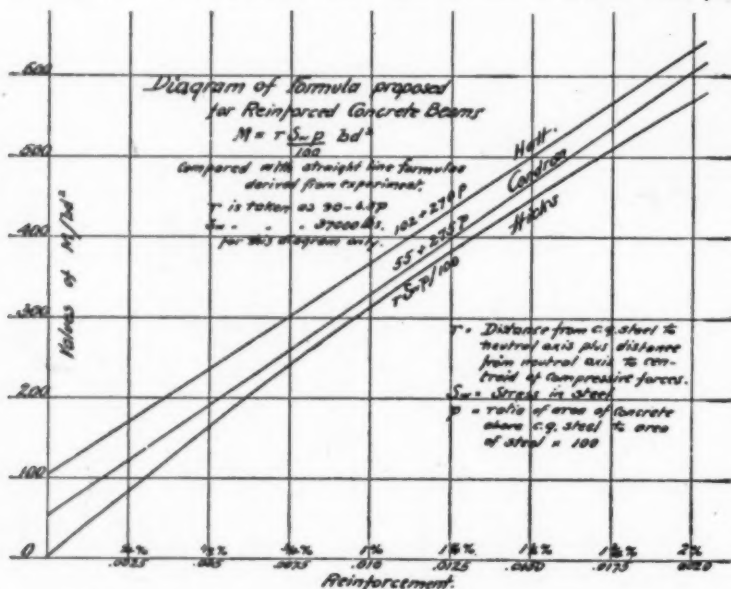 Diagram of Formula proposed
for Reinforced Concrete Beams
M = r Sₘ p / 100 bd²
Compared with straight line formulas
derived from experiment.
for this diagram only.
Hatt.
Condron
Hicks
102+270 P
55+275 P
r = Distance from c.g. steel to
neutral axis plus distance
from neutral axis to cen-
troid of compressive forces.
= Stress in steel
p = ratio of area of concrete
above c.g. steel to area
of steel × 100
Values of M/bd²
600
500
400
300
200
100
0
1% 2%
.0025 .005 .0075 .010 .0125 .0150 .0175 .0020
Reinforcement.